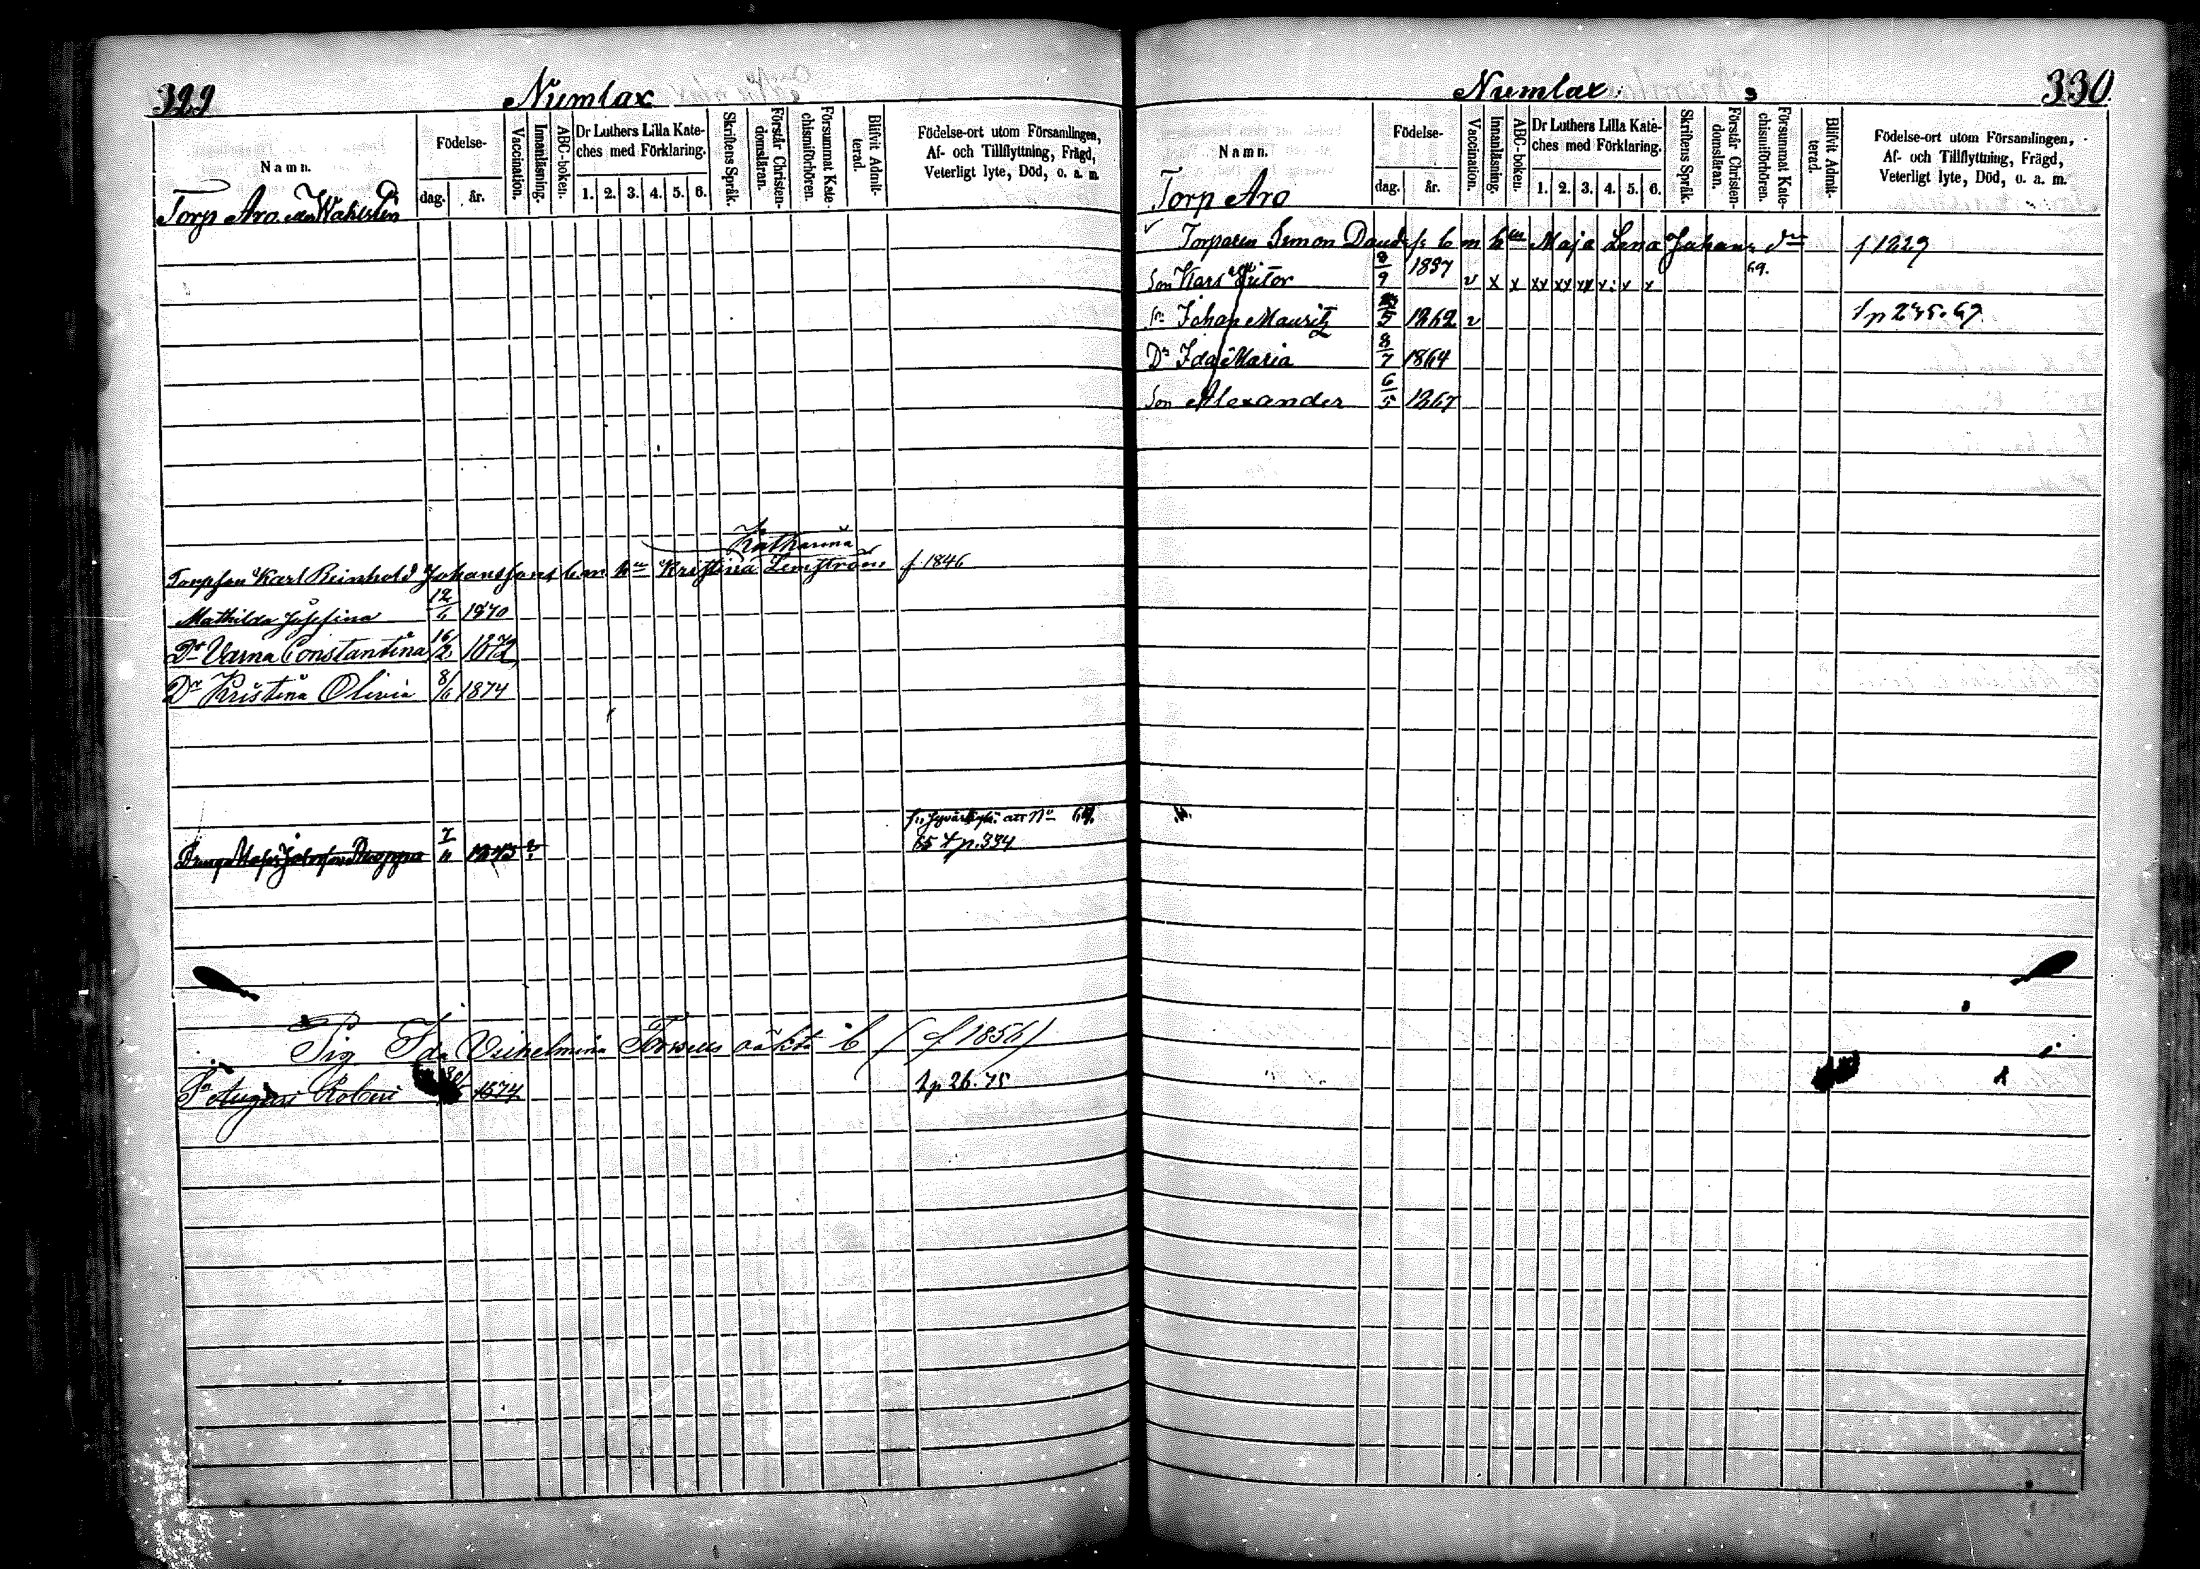 329
Numlax
Namn.
Födelse-
dag. år.
Vaccination.
Innanläsning.
ABC-boken.
Dr Luthers Lilla Kate-
ches med Förklaring.
1. 2. 3. 4. 5. 6.
Skriftens Språk.
Förstår Christen-
domsläran.
Försummat Kate-
chismiförhören.
Blifvit Admit-
terad.
Födelse-ort utom Församlingen,
Af- och Tillflyttning, Frägd,
Veterligt lyte, Död, o. a. m.
Torp Aro
Katharina
Torpson Karl Reinhold Johanssons b. m. hu Kristina Lemström f 1846
Mathilda Josefina 12/6 1870
Dr Varna Constantina 16/2 1872
Dr Kristina Olivia 8/6 1874
att No 69.
65 t p. 334
Pig Ida Vilhelmina oäkta b (f 1856)
So August Robert 1874 t p 26. 75
Numlax
330.
Namn.
Födelse-
dag. år.
Vaccination.
Innanläsning.
ABC-boken.
Dr Luthers Lilla Kate-
ches med Förklaring.
1. 2. 3. 4. 5. 6.
Skriftens Språk.
Förstår Christen-
domsläran.
Försummat Kate-
chismiförhören.
Blifvit Admit-
terad.
Födelse-ort utom Församlingen,
Af- och Tillflyttning, Frägd,
Veterligt lyte, Död, o. a. m.
Torp Aro
Torparen Simon Davidss b m hu Maja Lena Johans dr f 1829
Son Karl Victor 8/9 1857 v x x xx xx xx x x x 69.
Sn Johan Mauritz 1862 v
Dr Ida Maria 8/7 1864
Son Alexander 6/5 1867